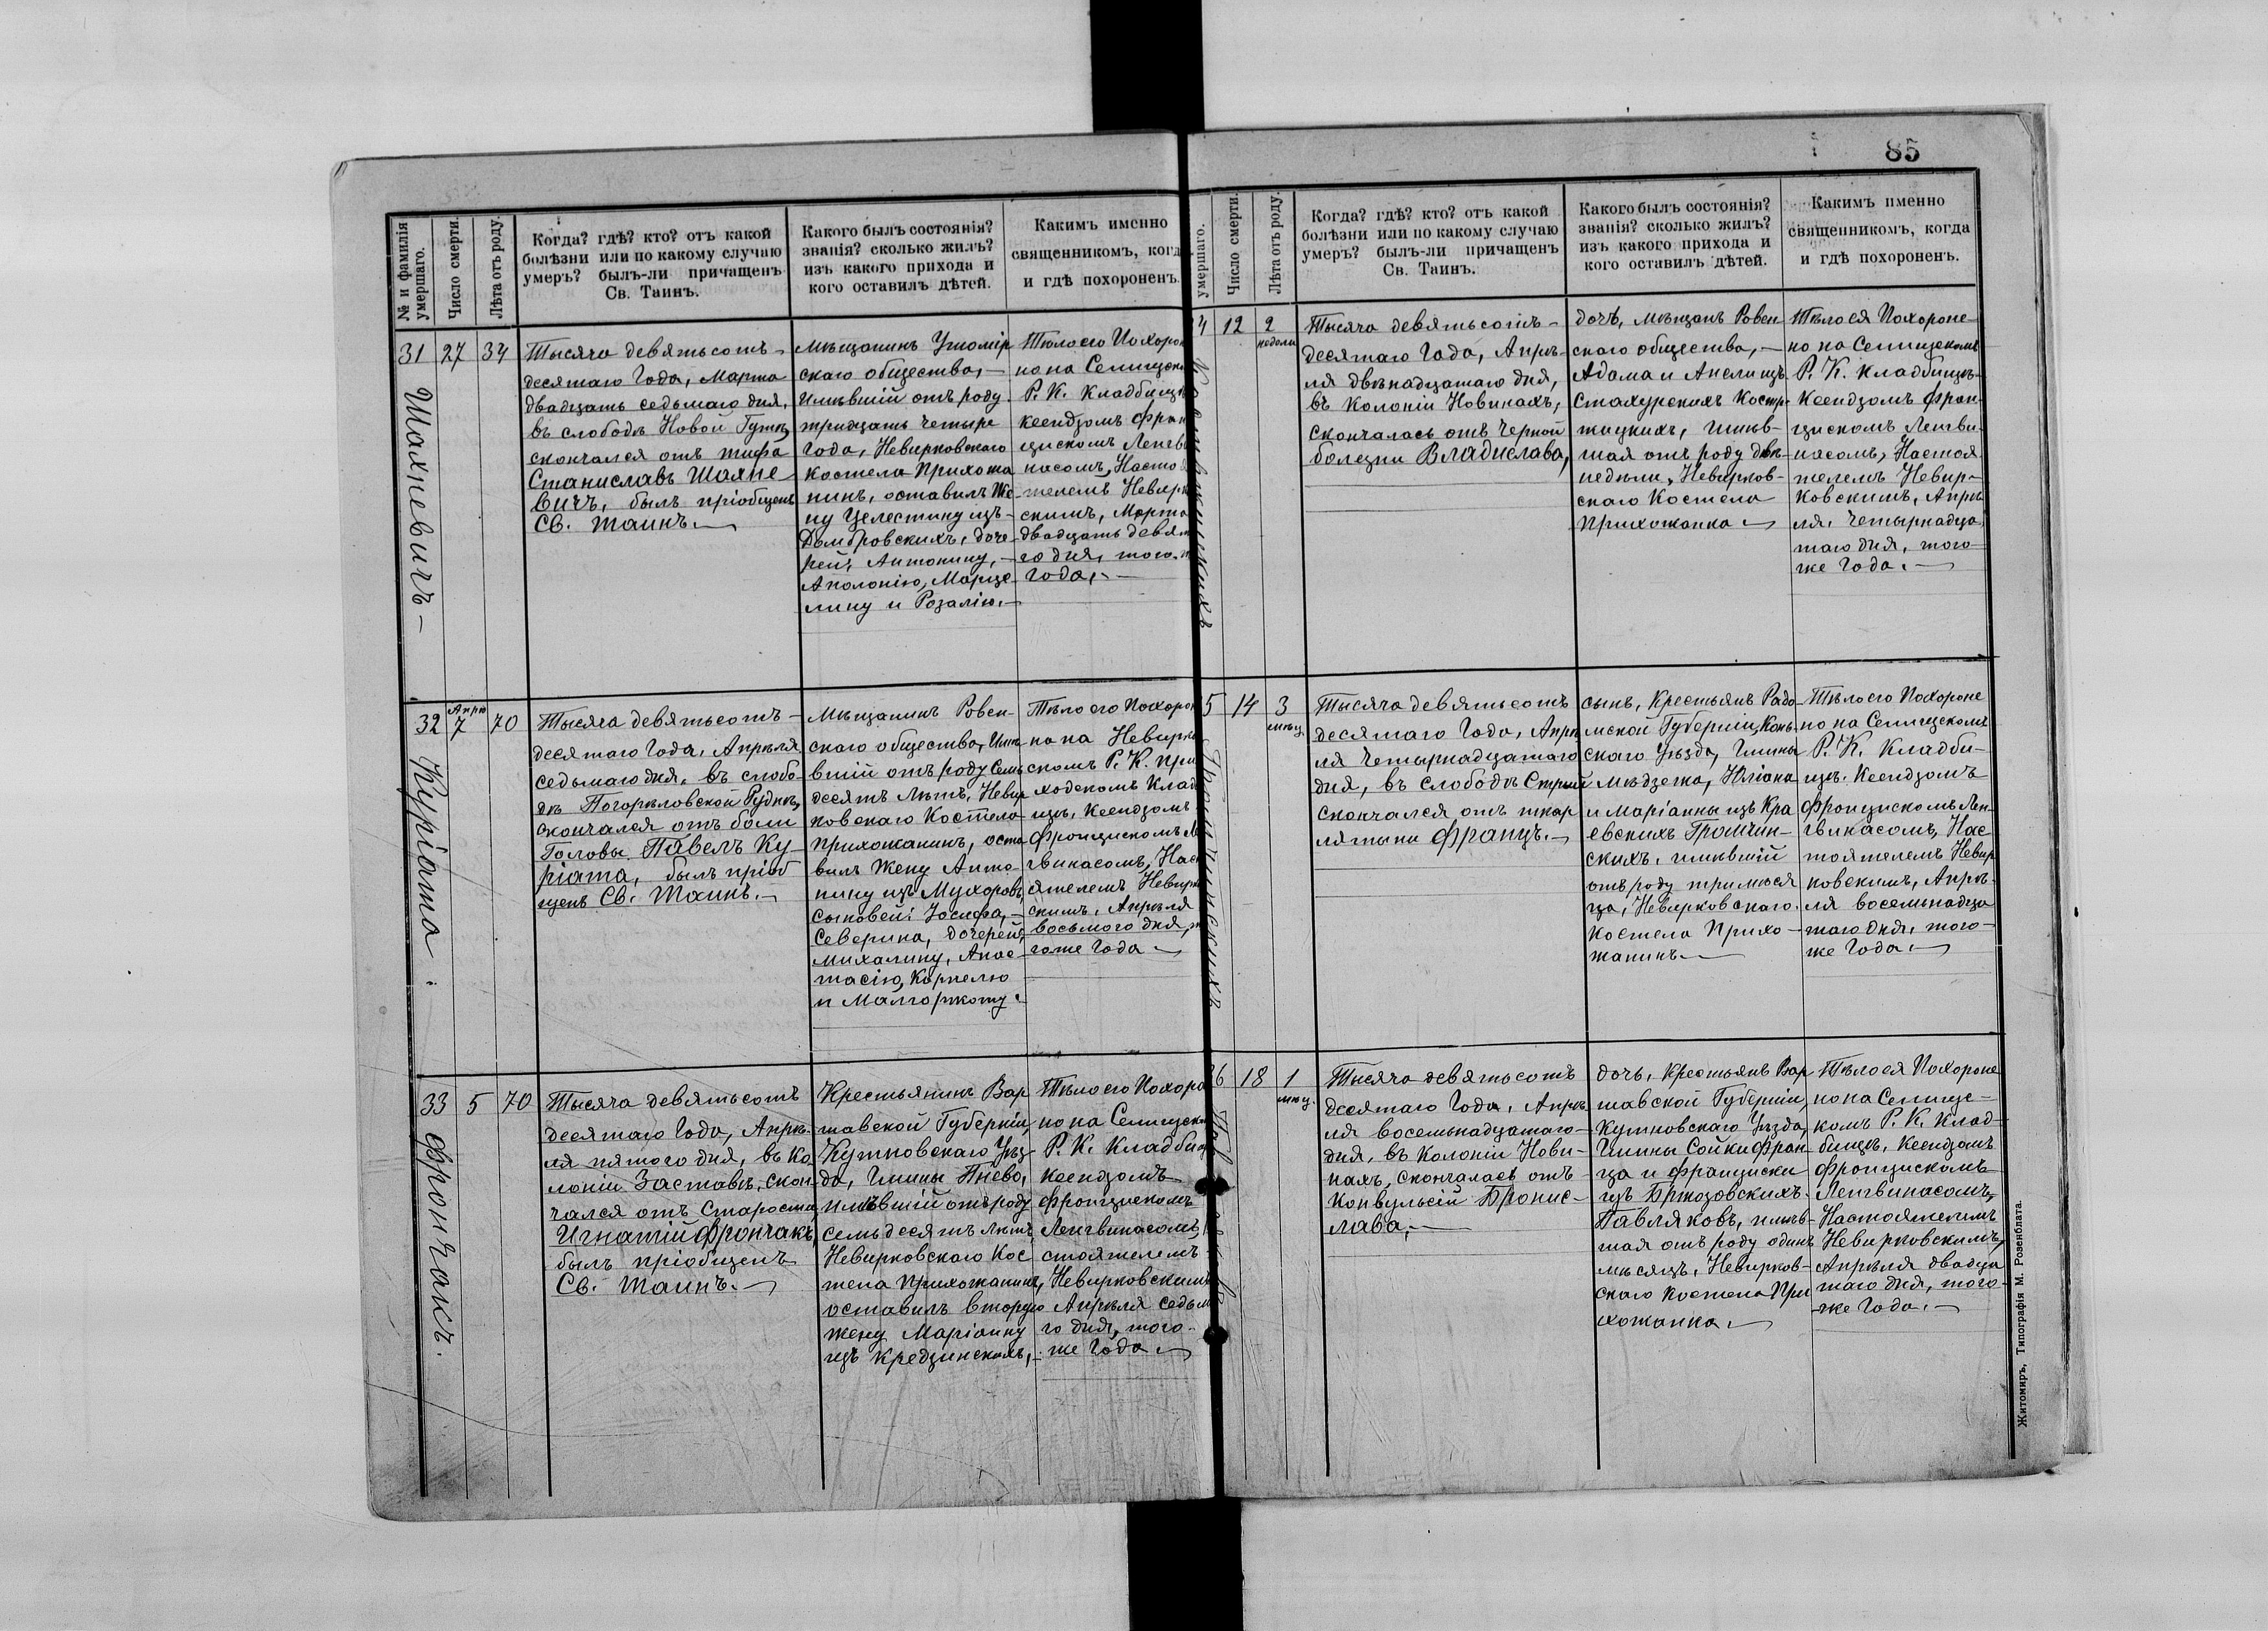 85
№ и фамилія
умершаго.
Число смерти.
Лѣта отъ роду.
Когда? гдѣ? кто? отъ какой
болѣзни или по какому случаю
умеръ? былъ-ли причащенъ
Св. Таинъ.
Какого былъ состоянія?
званія? сколько жилъ?
изъ какого прихода и
кого оставилъ дѣтей.
Каким­ъ именно
священникомъ, когд
и гдѣ похороненъ
31
Шахневичъ —
27
34
Тысяча девятьсотъ —
десятаго Года, Марта
двадцать седьмаго дня,
въ слободѣ Новой Гутѣ,
скончался отъ тифа
Станиславъ Шахне—
вичъ, былъ пріобщенъ
Св. Таинъ. —
Мѣщанинъ Ушомір
скаго общества, —
имѣвшій отъ роду
тридцать четыре
Года, Невирковскаго
костела Прихожа
нинъ, оставилъ Же—
ну Целестину изъ —
Домбровскихъ, доче—
рей: Антонину, —
Аполонію, Марце
лину и Розалію. —
Тѣло его Похорон
но на Селищск
Р. К. Кладбищѣ
ксендзомъ Фран
цискомъ Ленгв
насомъ, Насто
ятелемъ Невирк
скимъ, Марта
двадцать девят
го дня, того
Года, —
32
Куріата.
Апрѣ
7
70
Тысяча девятьсотъ —
десятаго Года, Апрѣля
седьмаго дня, въ слобо—
дѣ Погорѣловской Рудкѣ,
скончался отъ боли
Головы Павелъ Ку—
ріата, былъ пріоб
щенъ Св. Таинъ. —
Мѣщанинъ Ровен—
скаго общества, Имѣ
вшій отъ роду Семь
десятъ Лѣтъ, Невир
ковскаго Костела
прихожанинъ, оста
вилъ Жену Анто—
нину изъ Мухоровъ,
сыновей: Іосифа, —
Северина, дочерей,
Михалину, Анас—
тасію, Корнелю
и Малгоржату.
Тѣло его Похорон
но на Невирко
скомъ Р. К. При
ходскомъ Клад
ищѣ, Ксендзомъ
Францискомъ Ле
гвинасомъ, Наст
ятелемъ Невирк
скимъ, Апрѣля
восьмого дня, т
гоже Года —
33
Фрончакъ.
5
70
Тысяча девятьсотъ
десятаго Года, Апрѣ—
ля пятого дня, въ Ко
лоніи Заставѣ, скон—
чался отъ Старости
Игнатій Фрончакъ,
былъ пріобщенъ
Св. Таинъ. —
Крестьянинъ Вар
шавской Губерніи,
Кутновскаго Уѣз
да, Гмины Пнево,
имѣвшій отъ роду
семьдесятъ лѣтъ,
Невирковскаго Кос
тела Прихожанинъ,
оставилъ вторую
жену Маріанну
изъ Кредзинскихъ, —
Тѣло его Похоро
но на Селищск
Р. К. Кладбищ
Ксендзомъ
Францискомъ
Ленгвинасомъ,
стоятелемъ
Невирковскимъ
Апрѣля седьм
го дня, того
же Года —
умершаго.
Число смерти.
Лѣта отъ роду.
Когда? гдѣ? кто? отъ какой
болѣзни или по какому случаю
умеръ? былъ-ли причащенъ
Св. Таинъ.
Какого былъ состоянія?
званія? сколько жилъ?
изъ какого прихода и
кого оставилъ дѣтей.
Какимъ именно
священникомъ, когда
и гдѣ похороненъ.
4
12
2
недели
Тысяча девятьсотъ —
десятаго Года, Апрѣ—
ля двѣнадцатаго дня,
въ Колоніи Новинахъ,
скончалась отъ Черной
болезни Владислава,
дочь, мѣщанъ Ровен
скаго общества, —
Адама и Анели изъ
Стахурскихъ Костр—
жицкихъ, имѣв—
шая отъ роду двѣ
недѣли, Невирков—
скаго Костела
Прихожанка —
Тѣло ея Похороне—
но на Селищскомъ
Р. К. Кладбищѣ —
Ксендзомъ Фран—
цискомъ Ленгви—
насомъ, Настоя
телемъ Невир—
ковскимъ, Апрѣ
ля, четырнадца
таго дня, того
же Года. —
5
Громчинскихъ
14
3
мѣсц.
Тысяча девятьсотъ
десятаго Года, Апрѣ
ля Четырнадцатаго
дня, въ Слободѣ Стрый
скончался отъ шкар
лятыни Францъ. —
сынъ, Крестьянъ Радо—
мской Губерніи, Конь
скаго Уѣзда, Гмины
мѣдзежа, Юліана
и Маріанны изъ Кра
евскихъ Громчин—
скихъ, имѣвшій
отъ роду три мѣся
ца, Невирковскаго
Костела Прихо—
жанинъ. —
Тѣло его Похороне
но на Селищскомъ
Р. К. Кладби—
щѣ. Ксендзомъ
Францискомъ Лен—
гвинасомъ, Нас
тоятелемъ Невир
ковскимъ, Апрѣ—
ля восемьнадца
таго дня, того—
же Года. —
6
18
1
мѣсц.
Тысяча девятьсотъ
десятаго Года, Апрѣ
ля восемьнадцатаго —
дня, въ Колоніи Нови—
нахъ, скончалась отъ
Конвульсій Бронис—
лава, —
дочь, Крестьянъ Вар
шавской Губерніи,
Кутновскаго Уѣзда,
Гмины Сойки Фран—
ца и Франциски
изъ Бржозовскихъ
Павляковъ, имѣв—
шая отъ роду одинъ
мѣсяцъ, Невирков—
скаго Костела При
хожанка. —
Тѣло ея Похороне
но на Селищс—
комъ Р. К. Клад—
бищѣ, Ксендзомъ
Францискомъ
Ленгвинасомъ,
Настоятелемъ
Невирковскимъ,
Апрѣля двадца
таго дня, того—
же Года. —
Житомиръ, Типографія М. Розенблата.